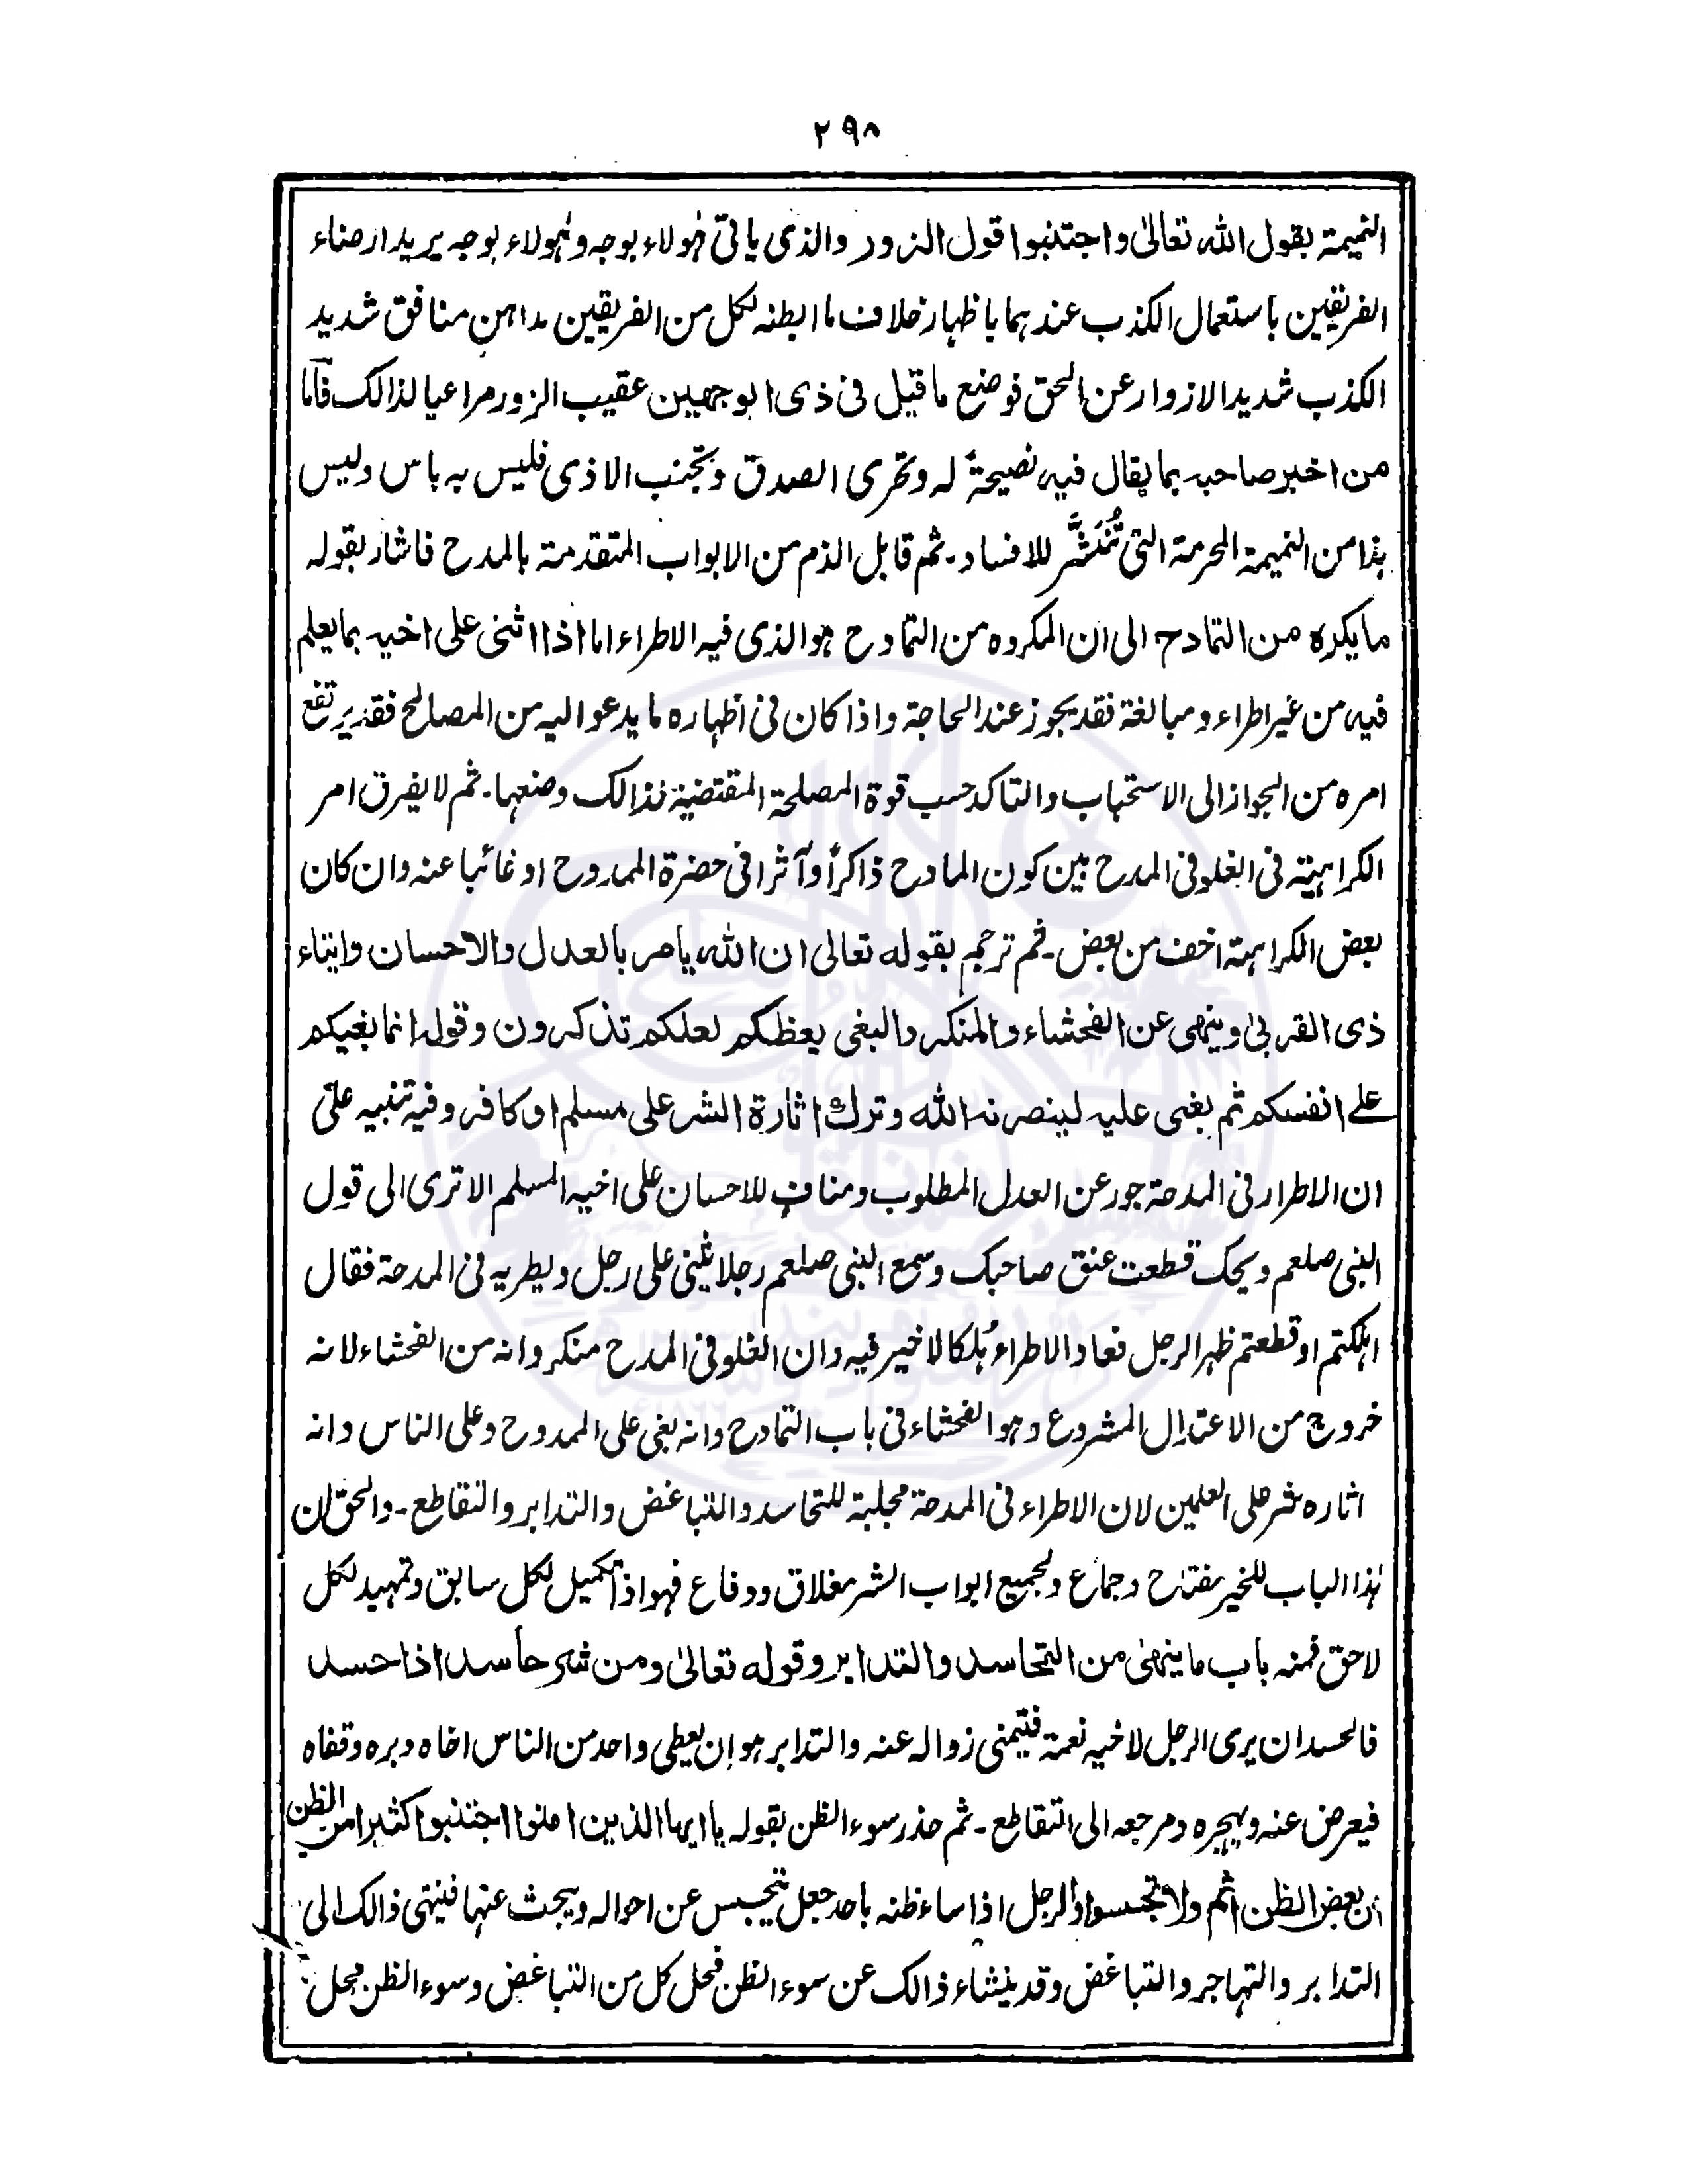 ٢٩٨
النميمة بقول الله تعالىٰ واجتنبوا قول الزور والذی یاتی هٰؤلاء بوجه وهٰؤلاء بوجه یرید ارضاء
الفریقین باستعمال الکذب عندهما باظهار خلاف ما ابطنه لکل من الفریقین مداهن منافق شدید
الکذب شدید الازوار عن الحق فوضع ما قیل فی ذی الوجهین عقیب الزور مراعیا لذالک فاما
من اخبر صاحبه بما یقال فیه نصیحةً له وتحری الصدق وتجنب الاذی فلیس به باس ولیس
هذا من النمیمة المحرمة التی تُنَشَّر للافساد ۔ ثم قابل الذم من الابواب المتقدمة بالمدح فاشار بقوله
ما یکره من التمادح الی ان المکروه من التمادح هو الذی فیه الاطراء اما اذا اثنی علی اخیه بما یعلم
فیه من غیر اطراء ومبالغة فقد یجوز عند الحاجة واذا کان فی اظهاره ما یدعوا لیه من المصالح فقد یرتفع
امره من الجواز الی الاستحباب والتاکد حسب قوة المصلحة المقتضیة لذالک وضعها ۔ ثم لا یفرق امر
الکراهیة فی الغلو فی المدح بین کون المادح ذاکراً وآثرا فی حضرة الممدوح او غائبا عنه وان کان
بعض الکراهة اخف من بعض ۔ ثم ترجم بقوله تعالی ان الله یامر بالعدل والاحسان وایتاء
ذی القربیٰ وینهی عن الفحشاء والمنکر والبغی یعظکم لعلکم تذکرون وقوله انما بغیکم
علے انفسکم ثم بغی علیه لینصرنه الله وترك اثارة الشر علی مسلم او کافر وفیه تنبیه علی
ان الاطرار فی المدحة جور عن العدل المطلوب ومناف للاحسان علی اخیه المسلم الا تری الی قول
النبی صلعم ویحک قطعت عنق صاحبک وسمع النبی صلعم رجلا یثنی علی رجل ویطریه فی المدحة فقال
اهلکتم او قطعتم ظهر الرجل فعاد الاطراء هُلکا لا خیر فیه وان الغلو فی المدح منکر وانه من الفحشاء لانه
خروج من الاعتدال المشروع وهو الفحشاء فی باب التمادح وانه بغی علی الممدوح وعلی الناس وانه
اثاره شر علی العلمین لان الاطراء فی المدحة مجلبة للتحاسد والتباغض والتدابر والتقاطع ۔ والحق ان
هٰذا الباب للخیر مفتاح وجماع ولجمیع ابواب الشر مغلاق ودفاع فهو اذاً تکمیل لکل سابق وتمهید لکل
لاحق فمنه باب ما ینهیٰ من التحاسد والتدابر وقوله تعالیٰ ومن شر حاسد اذا حسد
فالحسد ان یری الرجل لاخیه نعمة فیتمنی زواله عنه والتدابر هو ان یعطی واحد من الناس اخاه دبره وقفاه
فیعرض عنه ویهجره ومرجعه الی التقاطع ۔ ثم حذر سوء الظن بقوله یا ایها الذین امنوا اجتنبوا کثیرا من الظن
ان بعض الظن اثم ولا تجسسوا والرجل اذا ساء ظنه باحد جعل یتجسس عن احواله ویبحث عنها فینتهی ذالک الی
التدابر والتهاجر والتباغض وقد ینشاء ذالک عن سوء الظن فحل کل من التباغض وسوء الظن محل